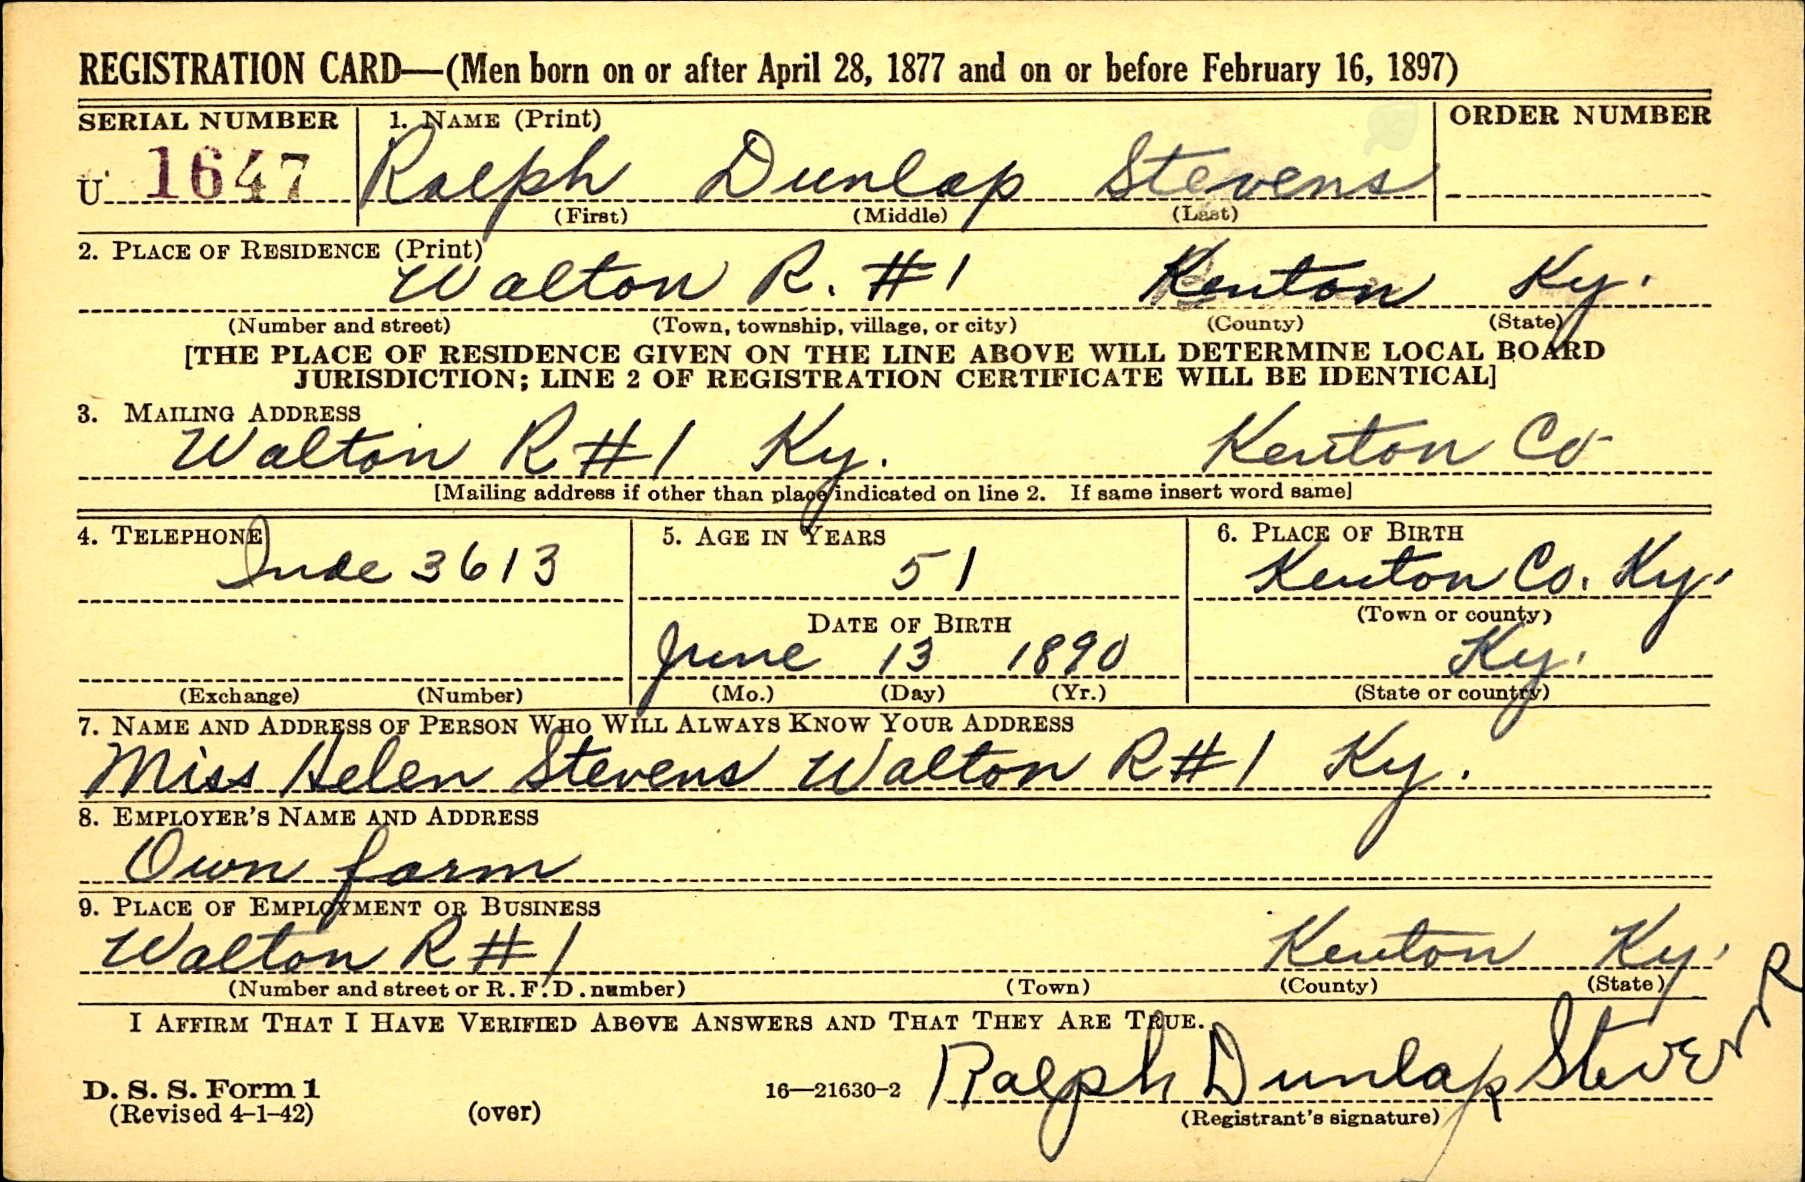 REGISTRATION CARD—(Men born on or after April 28, 1877 and on or before February 16, 1897)
SERIAL NUMBER 1. NAME (Print) ORDER NUMBER
U 1647 Ralph Dunlap Stevens
(First) (Middle) (Last)
2. PLACE OF RESIDENCE (Print)
Walton R. #1 Kenton Ky.
(Number and street) (Town, township, village, or city) (County) (State)
[THE PLACE OF RESIDENCE GIVEN ON THE LINE ABOVE WILL DETERMINE LOCAL BOARD
JURISDICTION; LINE 2 OF REGISTRATION CERTIFICATE WILL BE IDENTICAL]
3. MAILING ADDRESS
Walton R#1 Ky. Kenton Co
[Mailing address if other than place indicated on line 2. If same insert word same]
4. TELEPHONE 5. AGE IN YEARS 6. PLACE OF BIRTH
Inde 3613 51 Kenton Co. Ky.
(Town or county)
DATE OF BIRTH
June 13 1890 Ky.
(Exchange) (Number) (Mo.) (Day) (Yr.) (State or country)
7. NAME AND ADDRESS OF PERSON WHO WILL ALWAYS KNOW YOUR ADDRESS
Miss Helen Stevens Walton R#1 Ky.
8. EMPLOYER'S NAME AND ADDRESS
Own farm
9. PLACE OF EMPLOYMENT OR BUSINESS
Walton R#1 Kenton Ky.
(Number and street or R. F. D. number) (Town) (County) (State)
I AFFIRM THAT I HAVE VERIFIED ABOVE ANSWERS AND THAT THEY ARE TRUE.
Ralph Dunlap Stevens
D. S. S. Form 1 16—21630-2
(Revised 4-1-42) (over) (Registrant's signature)